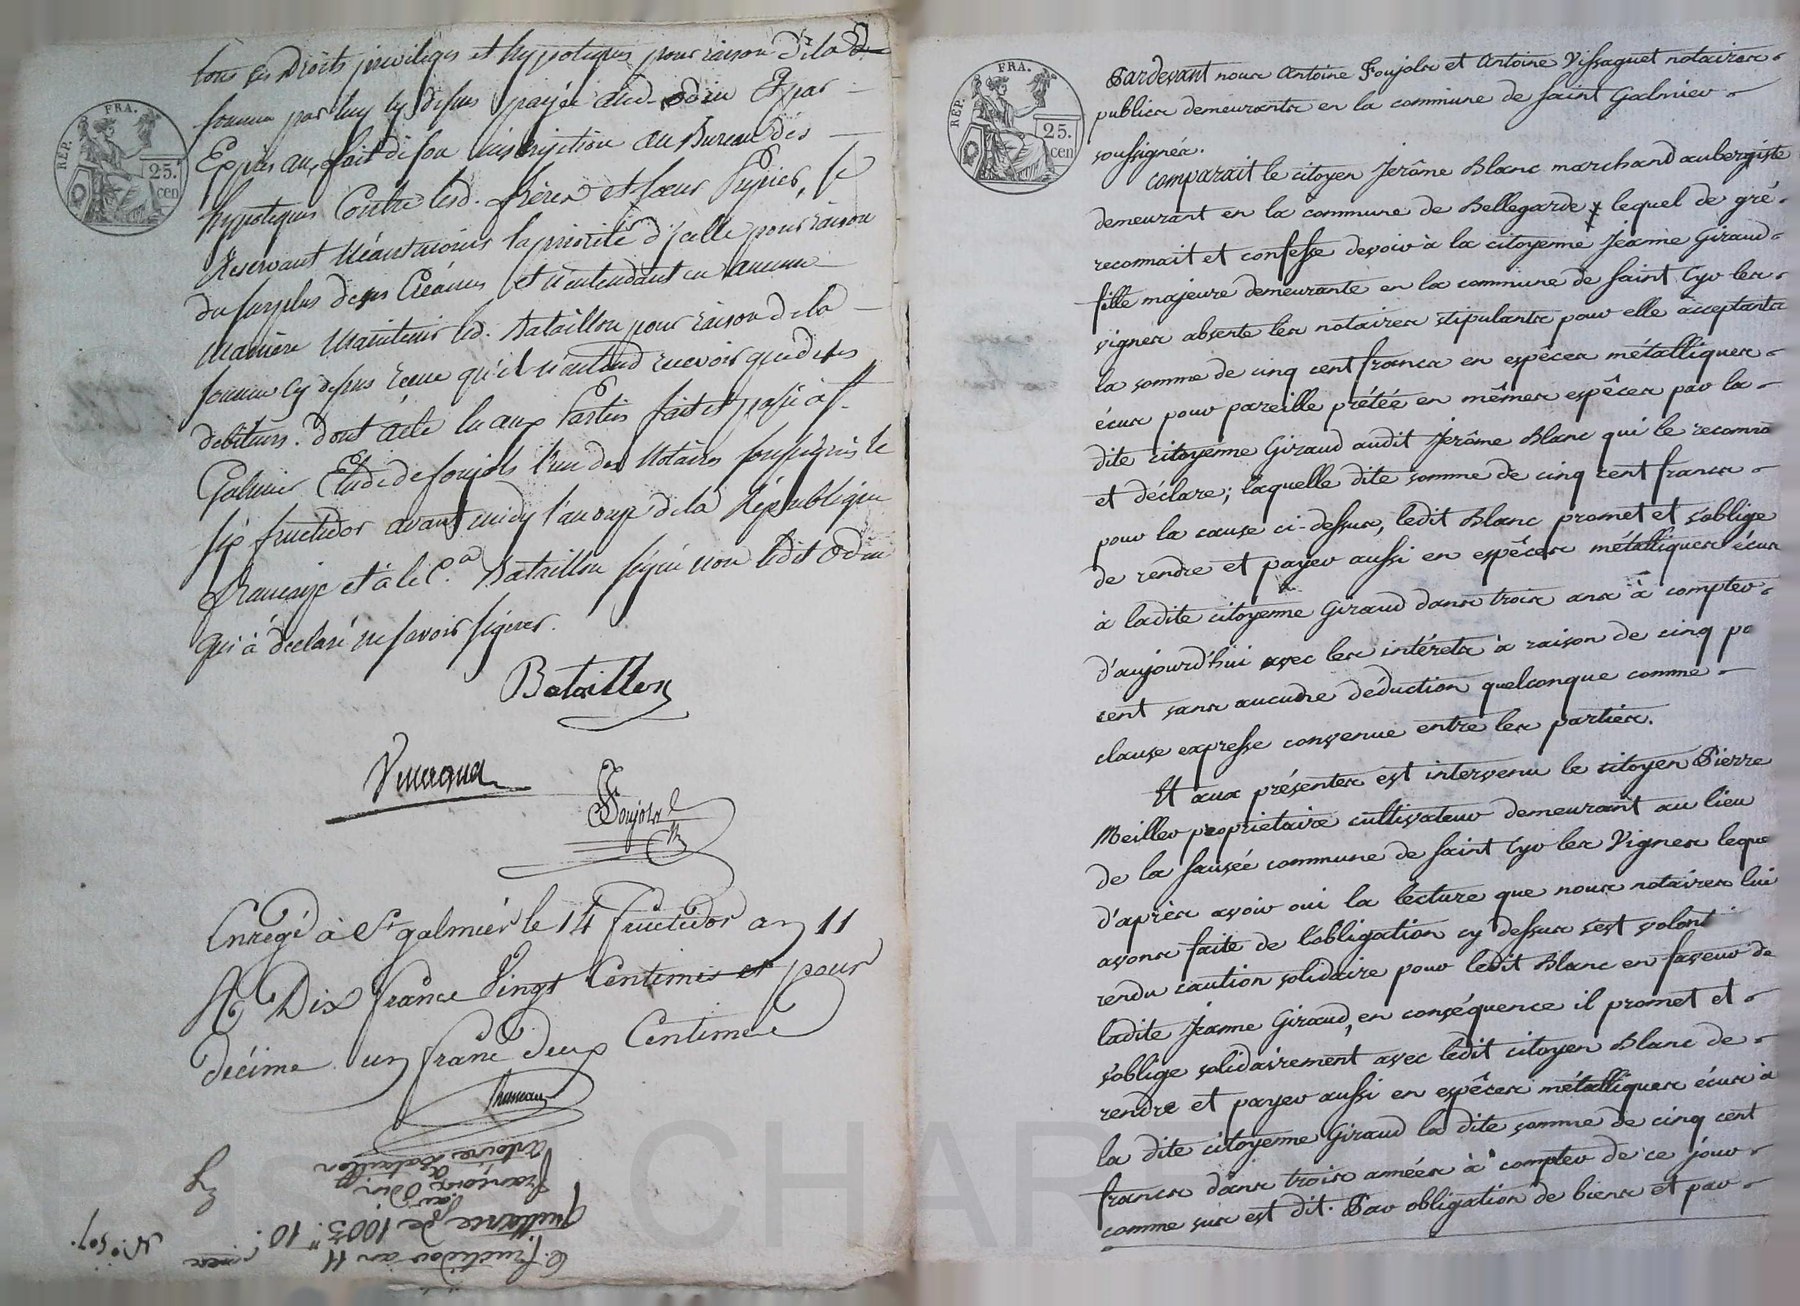 tous ses droits privileges et hypoteques pour raison de la de
somme par luy cy dessus payée aud. odin Et par
Exprès au fait de son inscription au Bureau des
hypoteques Contre lesd. frères et sœur Pupier, se
reservant Néantmoins la priorité d'icelle pour raison
du surplus de ses Créances et n'entendant en aucune
Manière Maintenir led. Bataillon pour raison de la
somme cy dessus recue qu'il n'entend recevoir que desdits
debiteurs. dont acte lu aux Parties fait et passé à St.
Galmier Etude de foujols l'un des Notaires soussignés le
six fructidor avant midy l'an onze de la République
française et à le C.en Bataillon signé non ledit Odin
qui à declaré ne savoir signer.
Bataillon
Foujols
Enregé à St galmier le 14 fructidor an 11
Rc Dix francs Vingt Centimes et pour
décime un franc deux Centimes
6. fructidor an 11
quittance de 1003." 10.
par
françois Odin
à
Antoine Bataillon
N.o 507.
REP. FRA.
25.
cen
REP. FRA.
25.
cen
Pardevant nous Antoine Foujols et Antoine Vissaguet notaires
publics demeurants en la commune de Saint Galmier
soussignés.
Comparait le citoyen Jerôme Blanc marchand aubergiste
demeurant en la commune de Bellegarde lequel de gré
reconnait et confesse devoir à la citoyenne Jeanne Giraud
fille majeure demeurante en la commune de Saint Cyr les
vignes absente les notaires stipulants pour elle acceptants
la somme de cinq cent francs en espêces métalliques
écus pour pareille prêtée en mêmes espêces par la
dite citoyenne Giraud audit Jerôme Blanc qui le reconna
et déclare; laquelle dite somme de cinq cent francs
pour la cause ci-dessus, ledit Blanc promet et s'oblige
de rendre et payer aussi en espêces métalliques écus
à ladite citoyenne Giraud dans trois ans à compter
d'aujourd'hui avec les intérets à raison de cinq po
cent sans aucune déduction quelconque comme
clause expresse convenue entre les parties.
Et aux présentes est intervenu le citoyen Pierre
Meiller proprietaire cultivateur demeurant au lieu
de la fausée commune de Saint Cyr les Vignes leque
d'après avoir oui la lecture que nous notaires lui
avons faite de l'obligation cy dessus s'est volont
rendu caution solidaire pour ledit Blanc en faveur de
ladite Jeanne Giraud, en conséquence il promet et
s'oblige solidairement avec ledit citoyen Blanc de
rendre et payer aussi en espêces métalliques écus à
la dite citoyenne Giraud la dite somme de cinq cent
francs dans trois années à compter de ce jour
comme sus est dit. Par obligation de biens et par